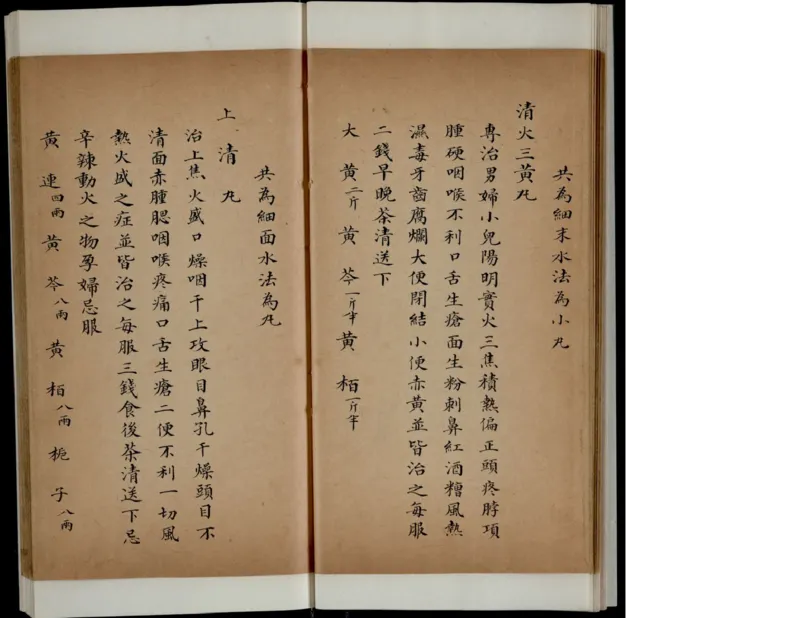 共為細末水法為小丸
清火三黃丸
專治男婦小兒陽明實火三焦積熱偏正頭疼脖項
腫硬咽喉不利口舌生瘡面生粉刺鼻紅酒糟風熱
濕毒牙齒腐爛大便閉結小便赤黃並皆治之每服
二錢早晚茶清送下
大黃二斤黃芩一斤半黃栢一斤半
共為細面水法為丸
上清丸
治上焦火盛口燥咽干上攻眼目鼻孔干燥頭目不
清面赤腫腮咽喉疼痛口舌生瘡二便不利一切風
熱火盛之症並皆治之每服三錢食後茶清送下忌
辛辣動火之物孕婦忌服
黃連四兩黃芩八兩黃栢八兩梔子八兩